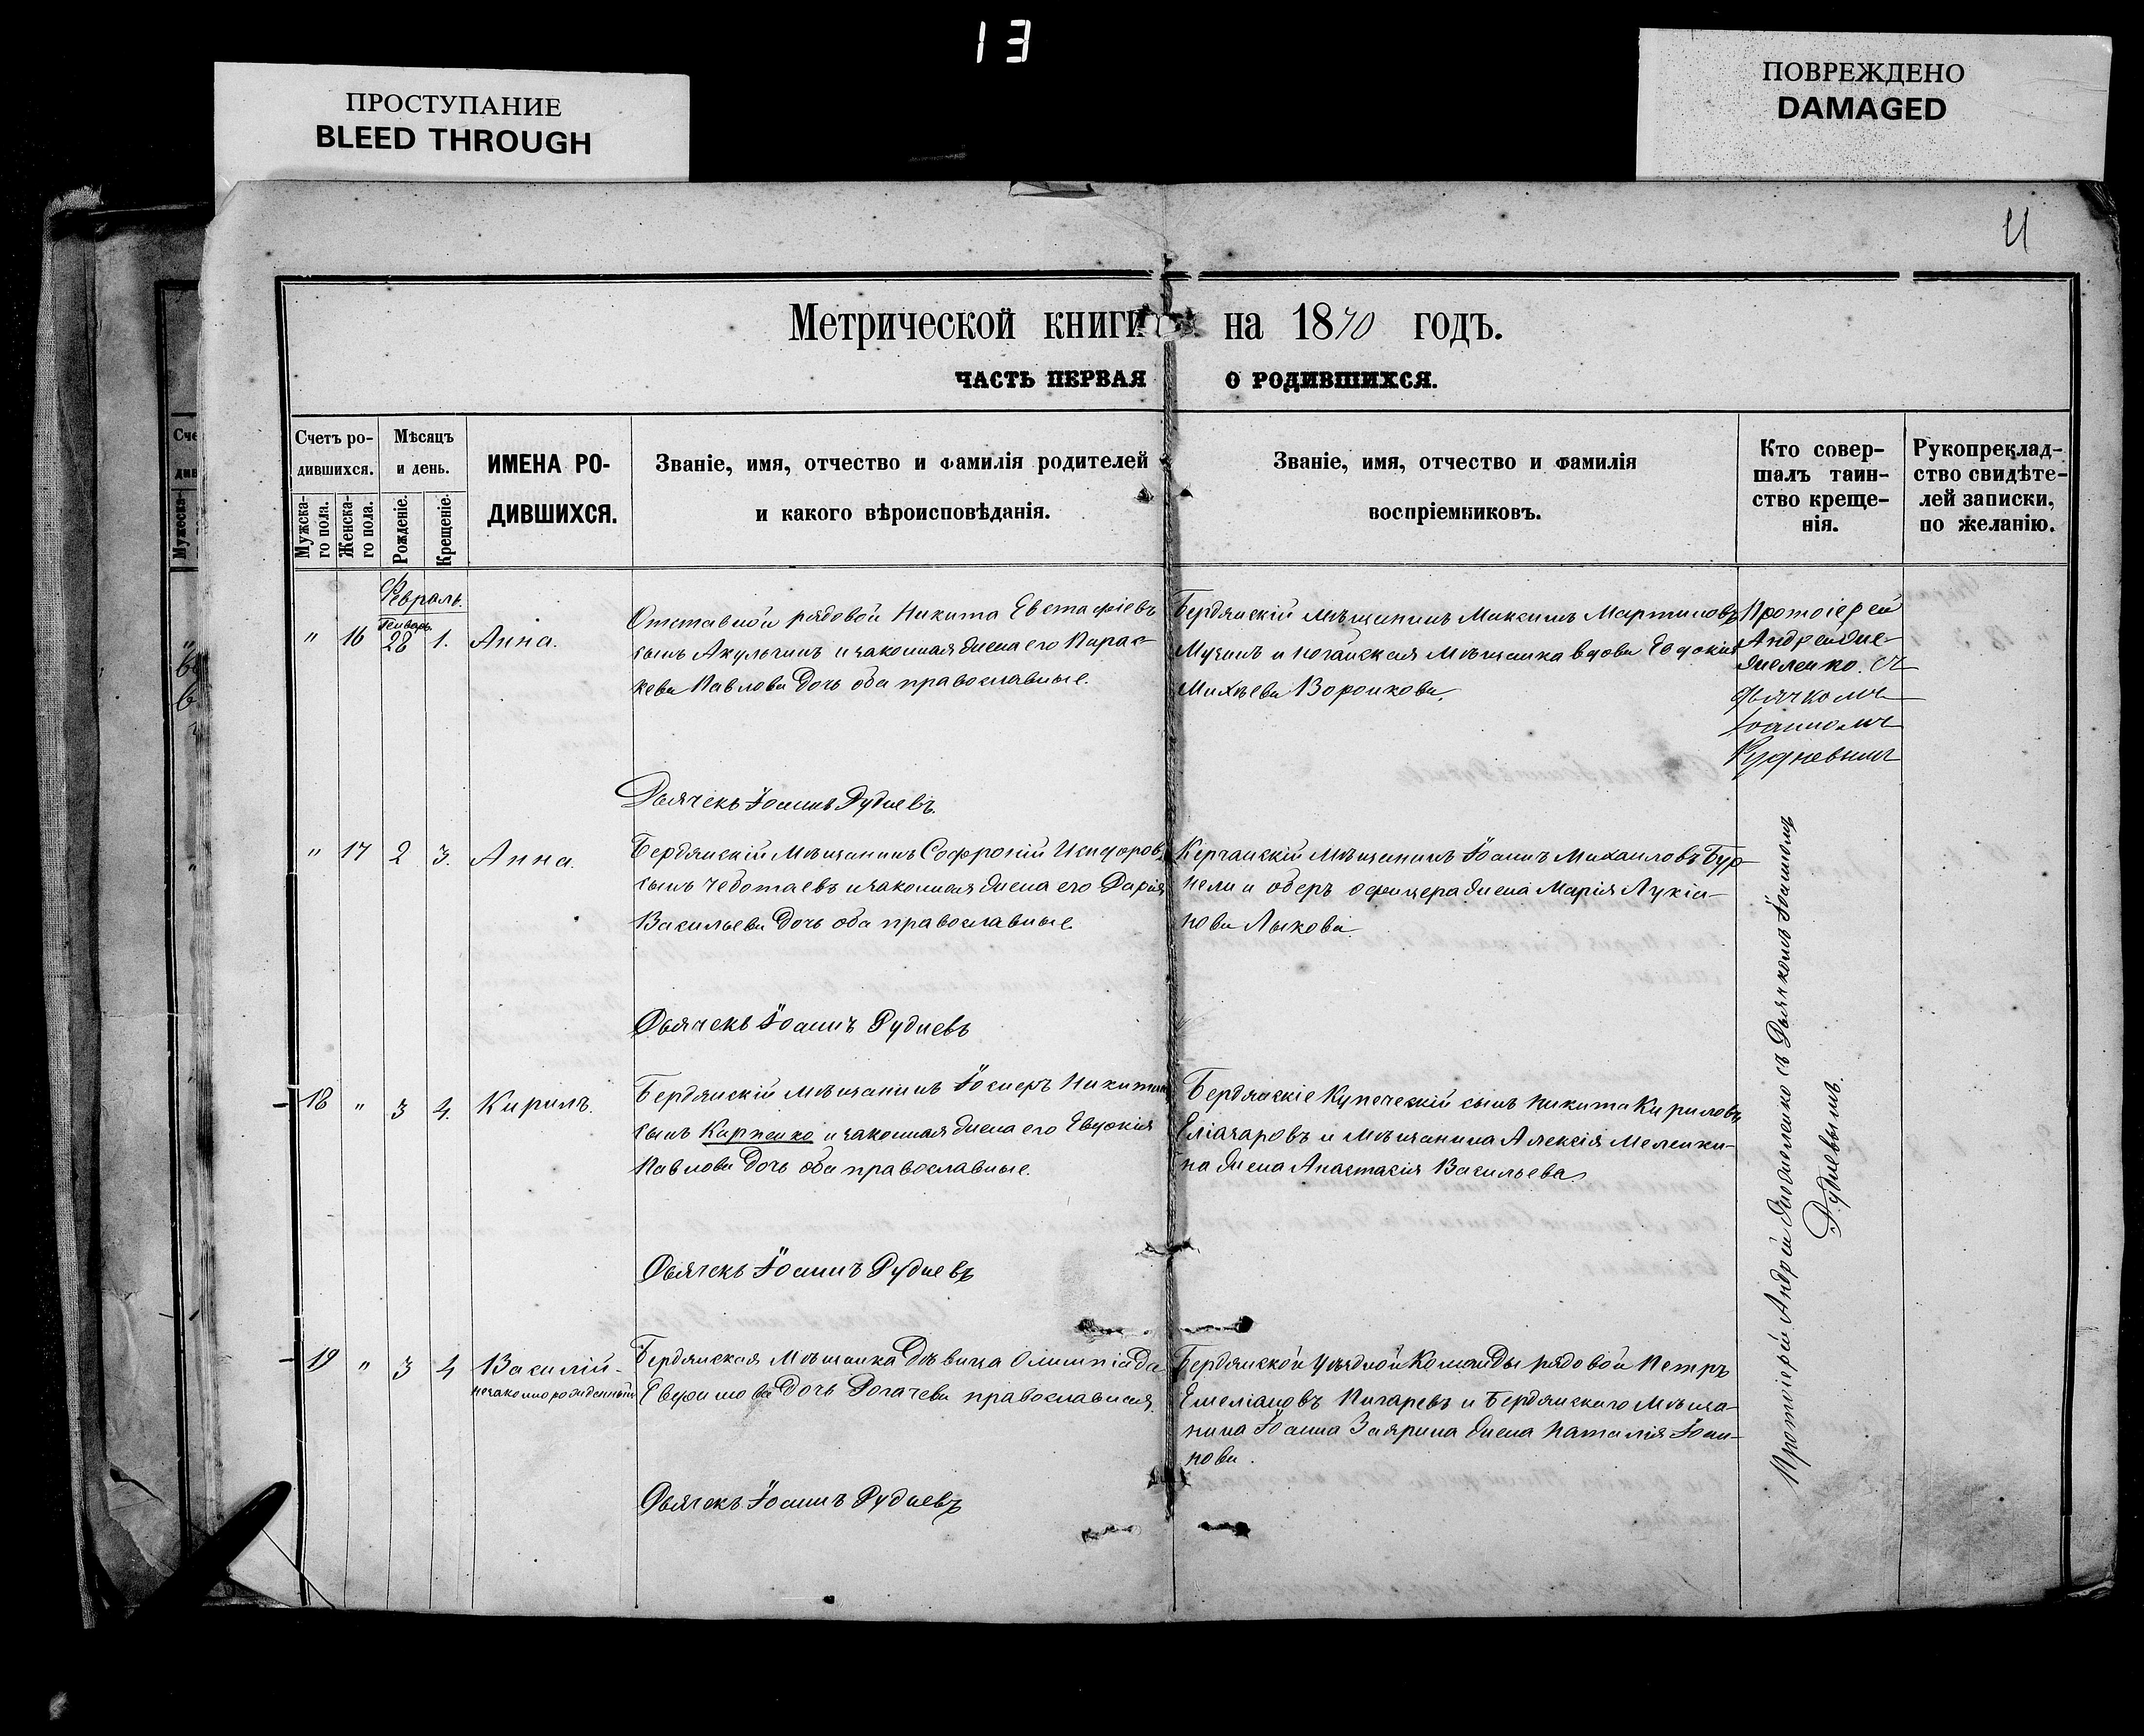 13
ПРОСТУПАНИЕ
BLEED THROUGH
ПОВРЕЖДЕНО
DAMAGED
11
Метрической книги на 1870 годъ.
ЧАСТЬ ПЕРВАЯ О РОДИВШИХСЯ.
Счетъ ро-
дившихся.
Мужска-
го пола.
Женска-
го пола.
Мѣсяцъ
и день.
Рожденіе.
Крещеніе.
ИМЕНА РО-
ДИВШИХСЯ.
Званіе, имя, отчество и фамилія родителей
и какого вѣроисповѣданія.
Званіе, имя, отчество и фамилія
воспріемниковъ.
Кто совер-
шалъ таин-
ство креще-
нія.
Рукоприклад-
ство свидѣте-
лей записки,
по желанію.
Февраль.
Генварь.
" 16 28 1. Анна.
Отставной рядовой Никита Евстафіевъ
сынъ Акульчинъ и законная жена его Парас-
кева Павлова дочь оба православные.
Бердянскій мѣщанинъ Максимъ Мартиновъ
и Ногайская мѣщанка вдова Евдокія
Михѣева Воронкова.
Протоіерей
Андрей
съ
дьячкомъ
Іоанномъ
Рудневымъ
Дьячекъ Іоаннъ Рудневъ.
" 17 2 3. Анна.
Бердянскій мѣщанинъ Софроній Никифоровъ
сынъ Чеботаевъ и законная жена его Дарія
Васильева дочь оба православные.
мѣщанинъ Іоаннъ Михаиловъ Бур-
нели и оберъ офицера жена Марія Лукіа-
нова Лыкова
Дьячекъ Іоаннъ Рудневъ
18 " 3 4. Кирилъ.
Бердянскій мѣщанинъ Никитинъ
сынъ Карпенко и законная жена его Евдокія
Павлова дочь оба православные.
Бердянскіе Купеческій сынъ Никита Кириловъ
Еліазаровъ и мѣщанина Алексія Меленки-
на жена Анастасія Васильева
Дьячекъ Іоаннъ Рудневъ
19 " 3 4 Василій-
незаконнорожденный
Бердянская мѣщанка дѣвица Олимпіада
Евфимова дочь Рогачева православная.
Бердянской уѣздной Команды рядовой Петръ
Емеліановъ Пигаревъ и Бердянского мѣща-
нина Іоанна Заярина жена Наталія Іоан-
нова.
Дьячекъ Іоаннъ Рудневъ
Протоіерей Андрей съ Дьячкомъ Іоанномъ
Рудневымъ.